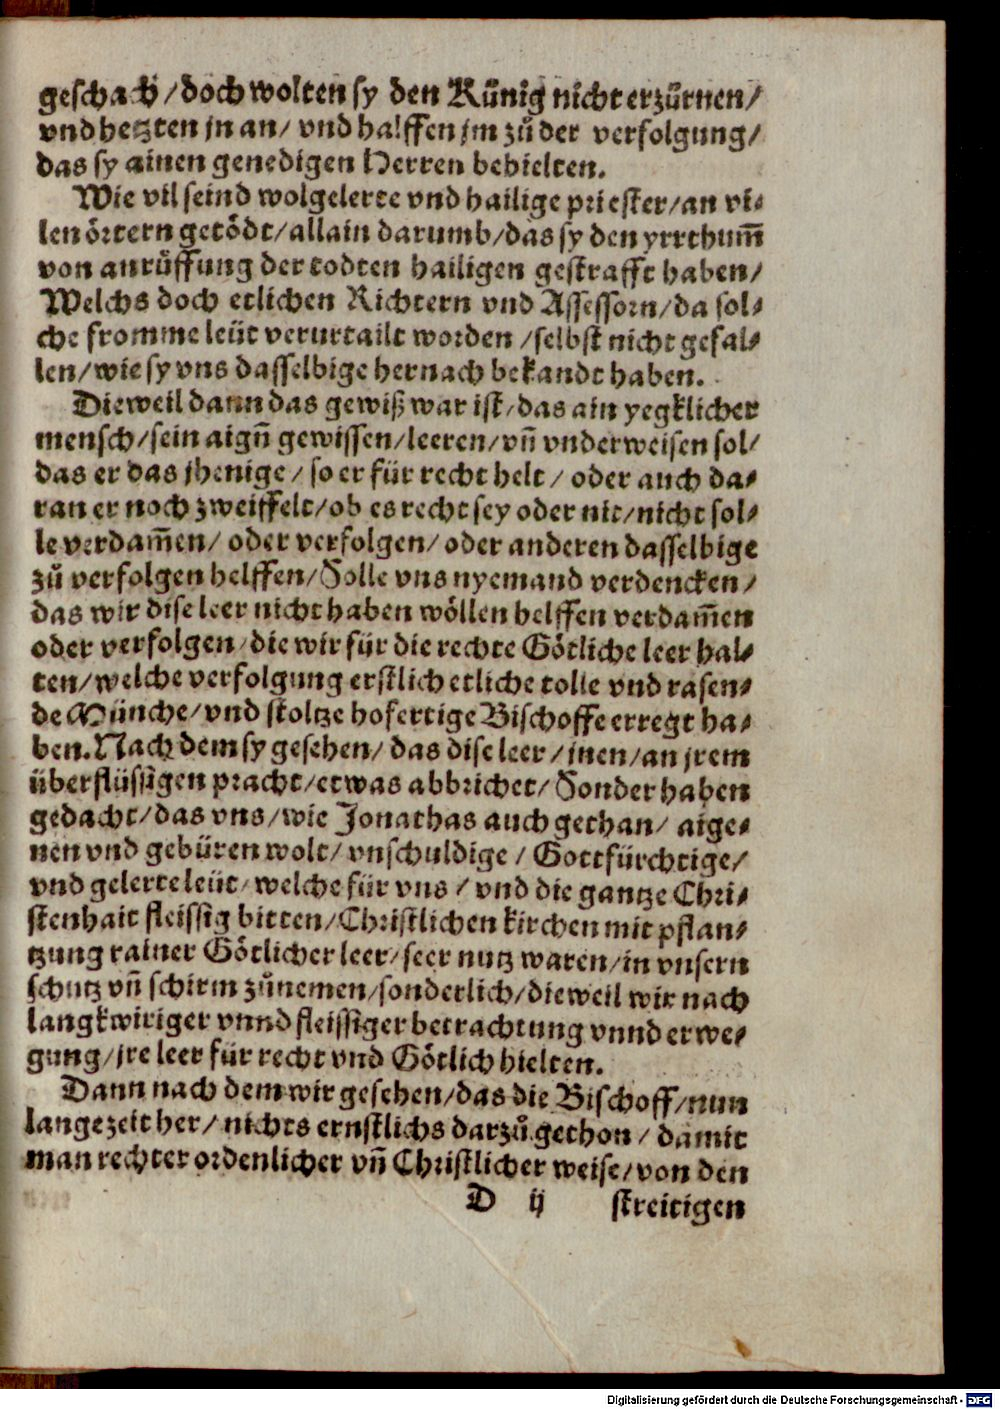 geschach / doch wolten sy den Künig nicht erzürnen /
vnd hetzten jn an / vnd halffen jm zů der verfolgung /
das sy ainen genedigen Herren behielten.
Wie vil seind wolgelerte vnd hailige priester / an vi⸗
len örtern getödt / allain darumb / das sy den yrrthum̃
von anrüffung der todten hailigen gestrafft haben /
Welchs doch etlichen Richtern vnd Assessorn / da sol⸗
che fromme leüt verurtailt worden / selbst nicht gefal⸗
len / wie sy vns dasselbige hernach bekandt haben.
Dieweil dann das gewiß war ist / das ain yegklicher
mensch / sein aigñ gewissen / leeren / vñ vnderweisen sol /
das er das jhenige / so er für recht helt / oder auch da⸗
ran er noch zweiffelt / ob es recht sey oder nit / nicht sol⸗
le verdam̃en / oder verfolgen / oder anderen dasselbige
zů verfolgen helffen / Solle vns nyemand verdencken /
das wir dise leer nicht haben wöllen helffen verdam̃en
oder verfolgen / die wir für die rechte Götliche leer hal⸗
ten / welche verfolgung erstlich etliche tolle vnd rasen⸗
de Münche / vnd stoltze hofertige Bischoffe erregt ha⸗
ben. Nach dem sy gesehen / das dise leer / jnen / an jrem
überflüssigen pracht / etwas abbrichet / Sonder haben
gedacht / das vns / wie Jonathas auch gethan / aige⸗
nen vnd gebüren wolt / vnschuldige / Gottfürchtige /
vnd gelerte leüt / welche für vns / vnd die gantze Chri⸗
stenhait fleissig bitten / Christlichen kirchen mit pflan⸗
tzung rainer Götlicher leer / seer nutz waren / in vnsern
schutz vñ schirm zůnemen / sonderlich / dieweil wir nach
langkwiriger vnnd fleissiger betrachtung vnnd erwe⸗
gung / jre leer für recht vnd Götlich hielten.
Dann nach dem wir gesehen / das die Bischoff / nun
lange zeit her / nichts ernstlichs darzů gethon / damit
man rechter ordenlicher vñ Christlicher weise / von den
D ij streitigen
Digitalisierung gefördert durch die Deutsche Forschungsgemeinschaft - DFG